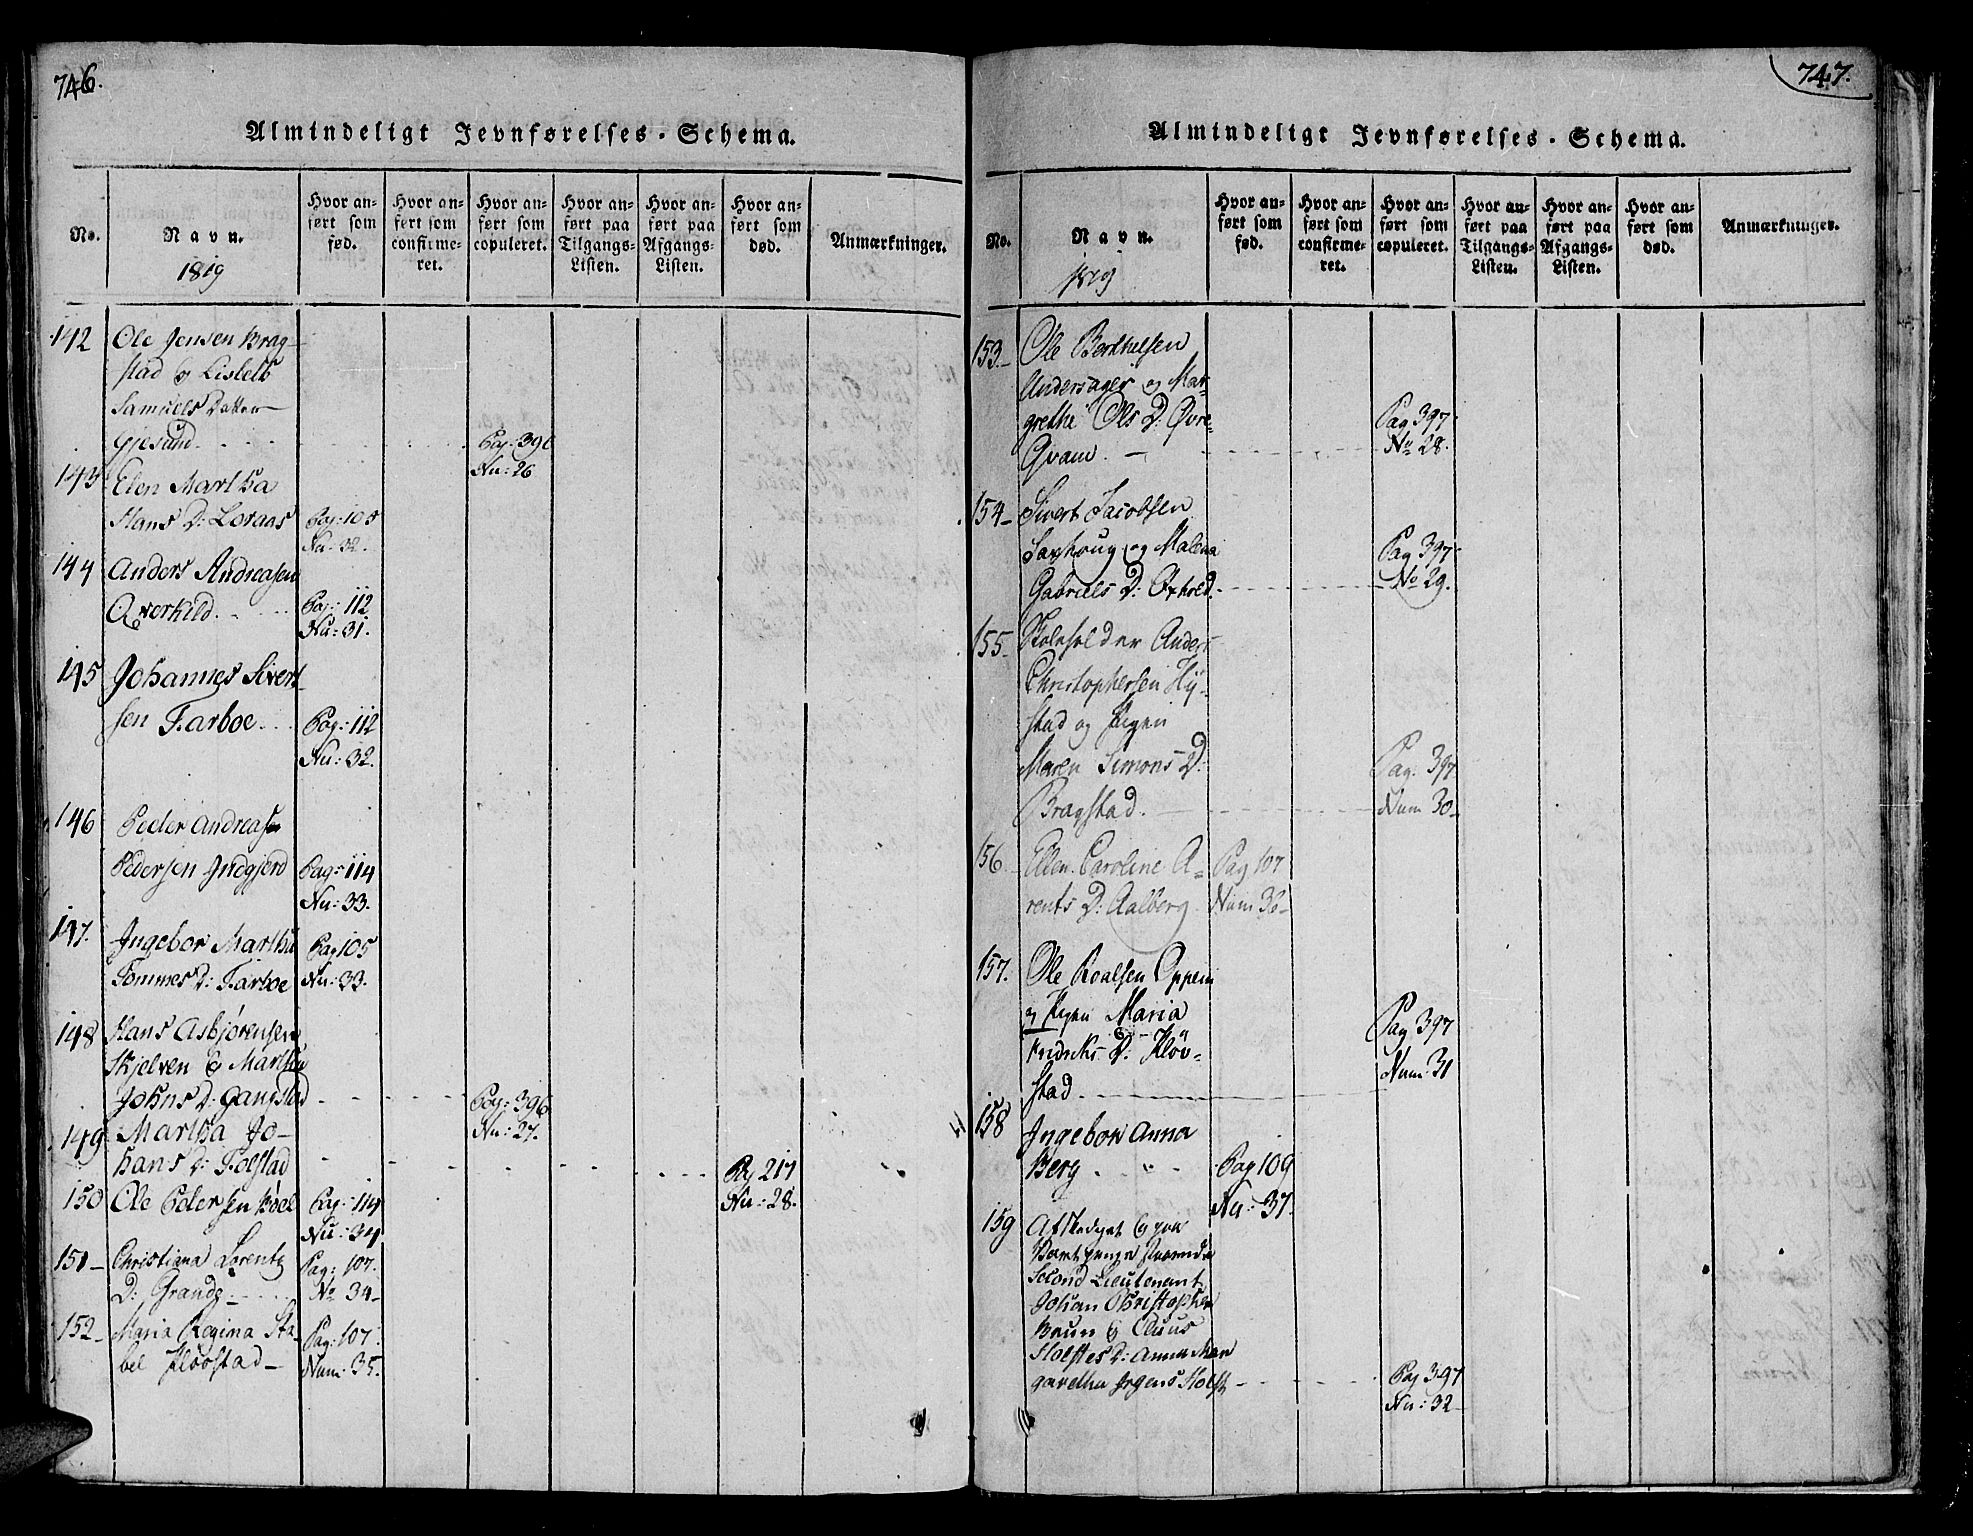 746.
Almindeligt Jevnførelses-Schema.
No.
Navn.
1819
Hvor an-
ført som
fød.
Hvor an-
ført som
confirme-
ret.
Hvor an-
ført som
copuleret.
Hvor an-
ført paa
Tilgangs-
Listen.
Hvor an-
ført paa
Afgangs-
Listen.
Hvor an-
ført som
død.
Anmærkninger.
142 Ole Jensen Brag-
stad & Lisbeth
Samuels Datter
Gjesund. Pag: 396
Nu: 26
143 Elen Martha
Hans D: Loraas Pag: 105
Nu: 32.
144 Anders Andreasen
Qverkild. Pag: 112
Nu: 31.
145 Johannes Sivert-
sen Farboe. Pag: 112
Nu: 32.
146 Peder Andreas
Pedersen Indgjerd Pag: 114
Nu: 33.
147. Ingebor Martha Pag 105
Tommes D: Farboe Nu: 33.
148 Hans Asbjørensen
Skjelven & Martha
Johns D: Gangstad Pag: 396
Nu: 27.
149 Martha Jo-
hans D: Folstad Pag 217
Nu: 28.
150 Ole Pedersen Boel Pag: 114
Nu: 34
151 Christiana Lorentz Pag: 107.
D: Grandz No 34
152 Maria Regina Sta- Pag: 107.
bel Kloostad Num: 35.
747.
Almindeligt Jevnførelses-Schema.
No.
Navn.
1819
Hvor an-
ført som
fød.
Hvor an-
ført som
confirme-
ret.
Hvor an-
ført som
copuleret.
Hvor an-
ført paa
Tilgangs-
Listen.
Hvor an-
ført paa
Afgangs-
Listen.
Hvor an-
ført som
død.
Anmærkninger.
153 Ole Berthelsen
Undersager og Mar-
grethe Ols D: Øvre- Pag 397
Qvam. No 28.
154 Sivert Jacobsen
Saxhoug og Malena Pag 397
Gabriels D: Oxhold. No 29.
155 Anders
Christophersen Hy-
stad og Pigen
Maren Simons D: Pag. 397
Bragstad. Num 30
156 Ellen Caroline A- Pag 107
rents D: Aalberg Num 36
157. Ole Roalsen Oppem
og Pigen Maria Pag 397
D: Kløv- Num. 31
stad
158 Ingebor Anna
Berg Pag 109
Nu: 37.
159 Afskediget & paa
Second Lieutenant
Johan Christopher
Bruun & Cluus
Holstes D: Anna Mar
garetha Jrgens Holst Pag 397
Nu: 32